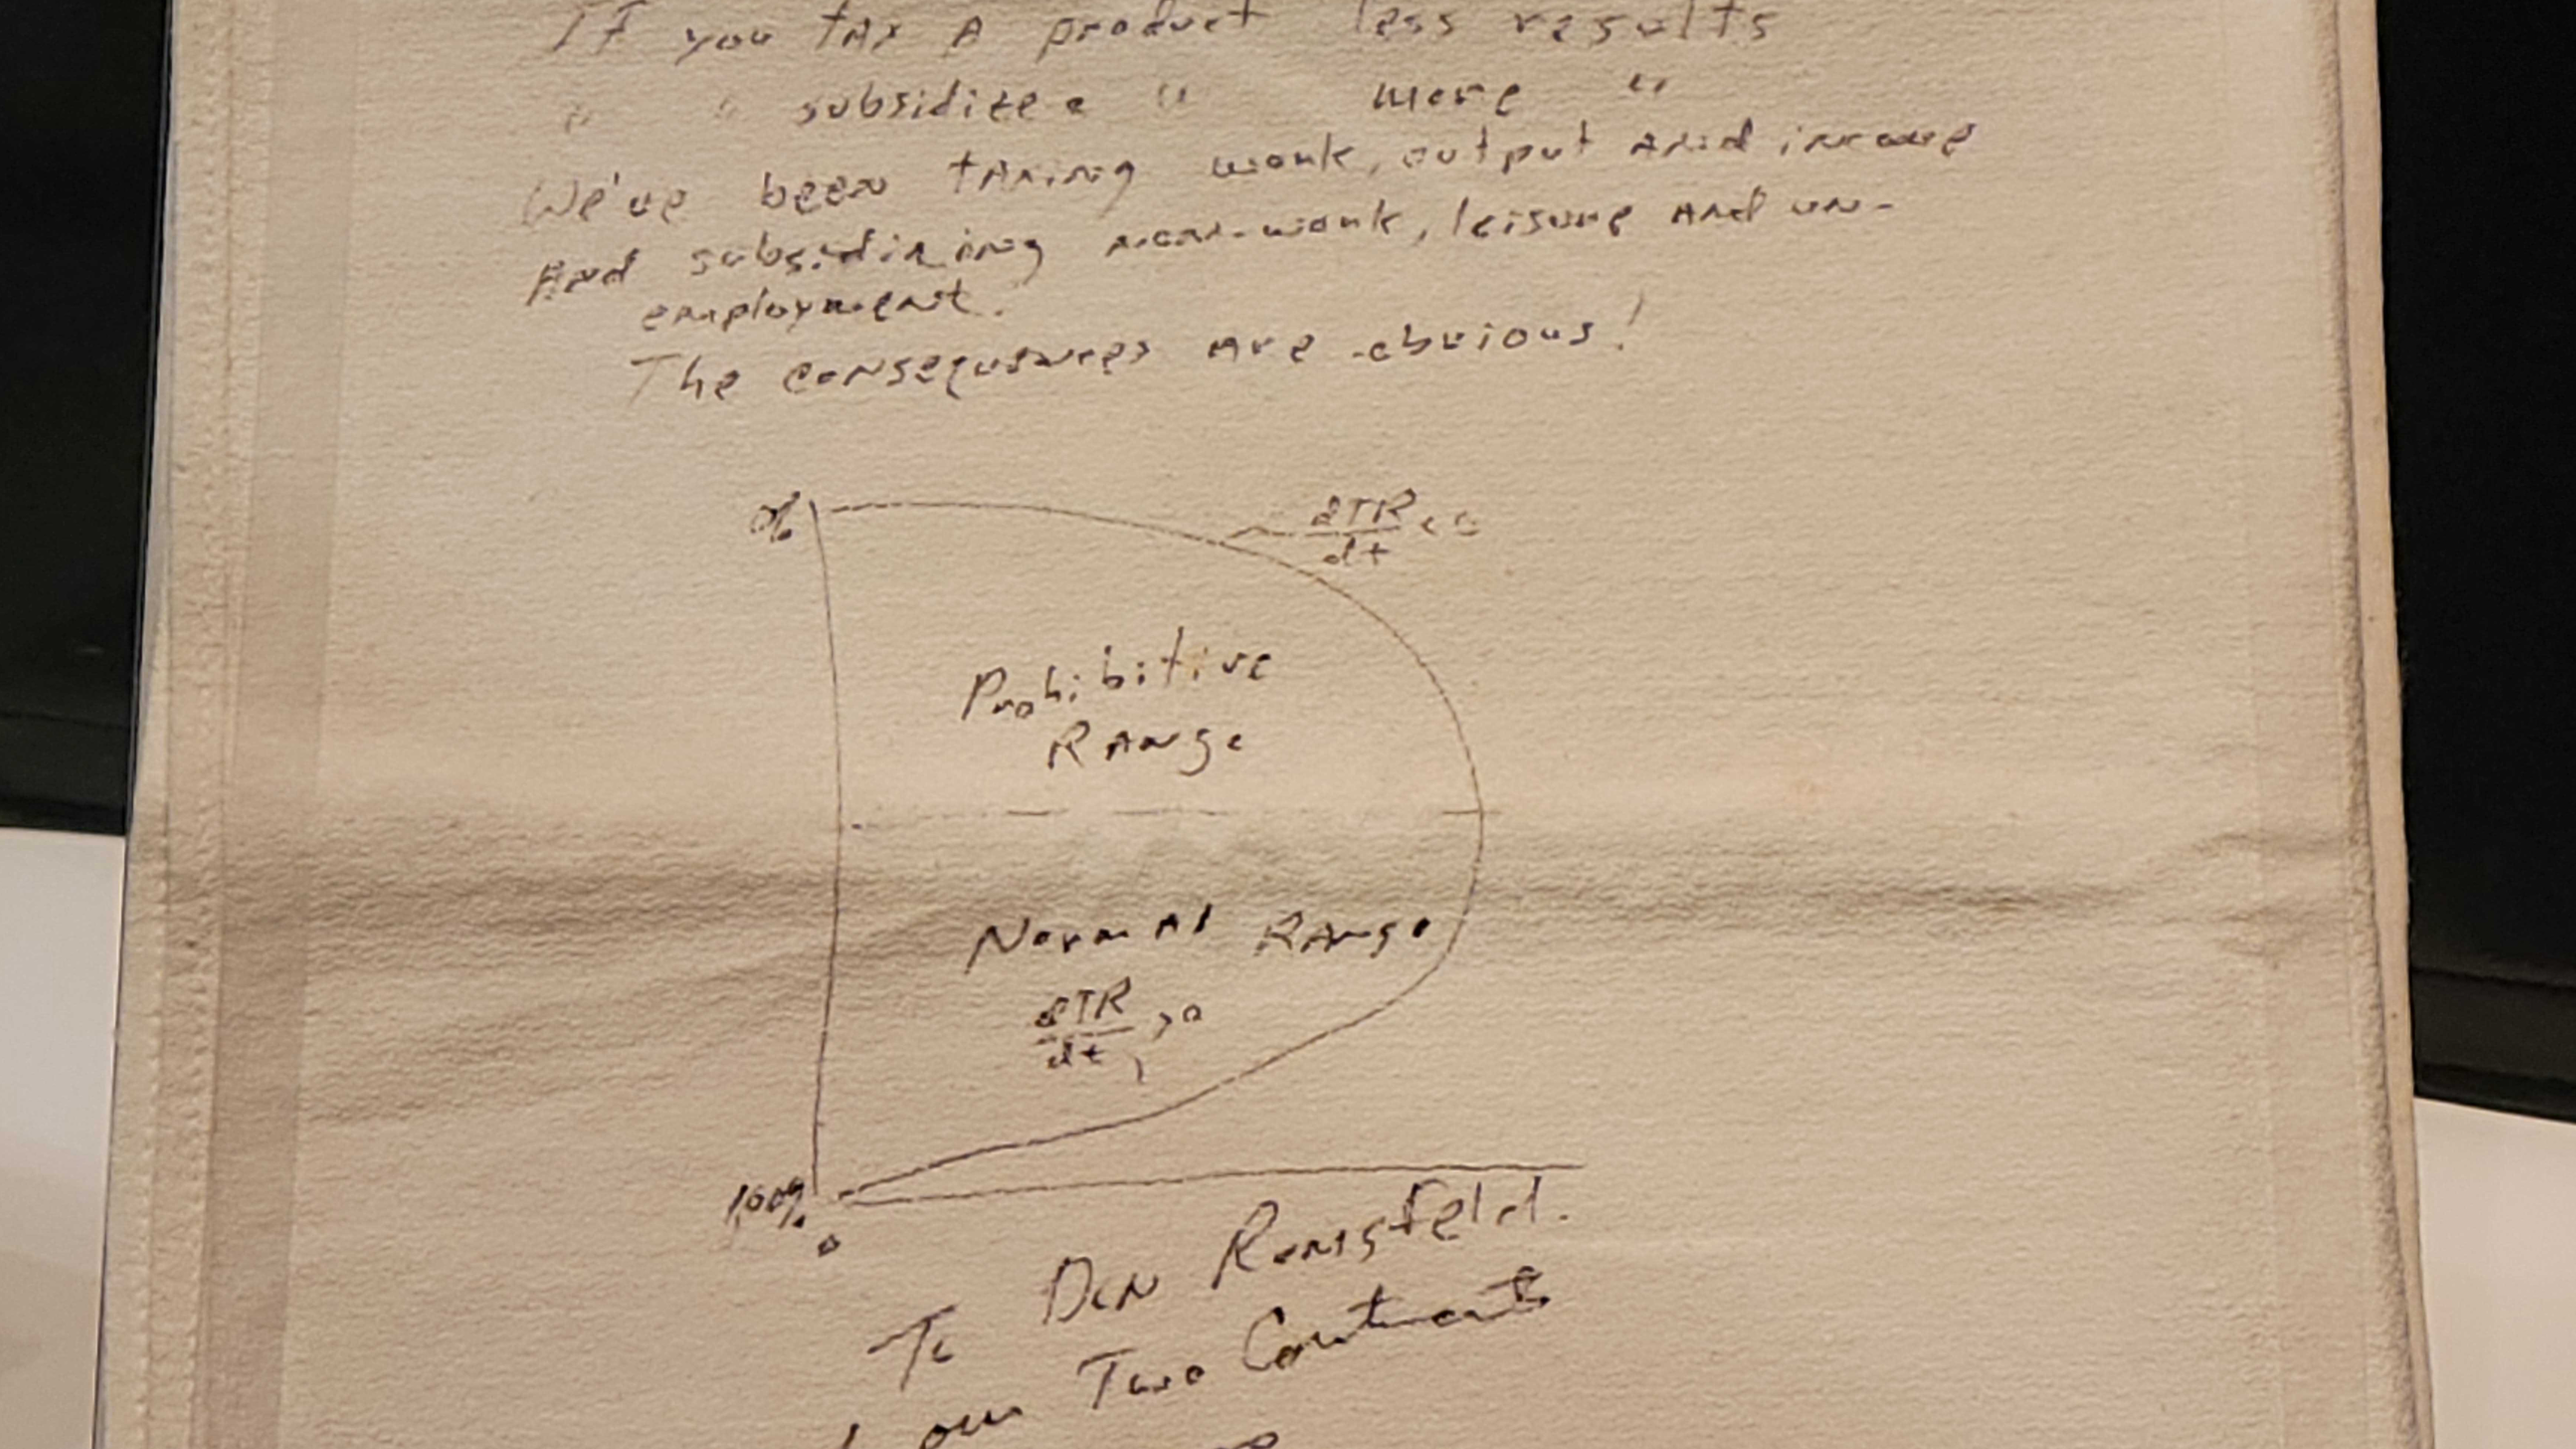 If you tax a product less results
" " subsidize a " more "
We've been taxing work, output and income
and subsidizing non-work, leisure and un-
employment.
The consequences are obvious!
0%
dTR/dt < 0
Prohibitive
Range
Normal Range
dTR/dt > 0
100%
0
To Don Rumsfeld.
our Two Continents